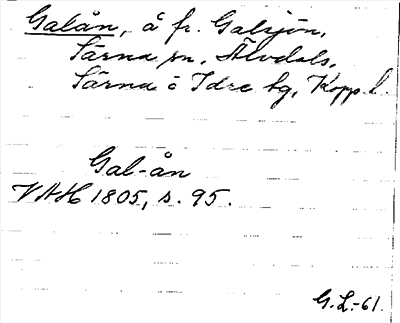 Galån, å fr. Galsjön,
Särna sn, Älvdals,
Särna o Idre tg, Kopp. l.
Gal-ån
VAH 1805, s. 95.
G.L.-61.